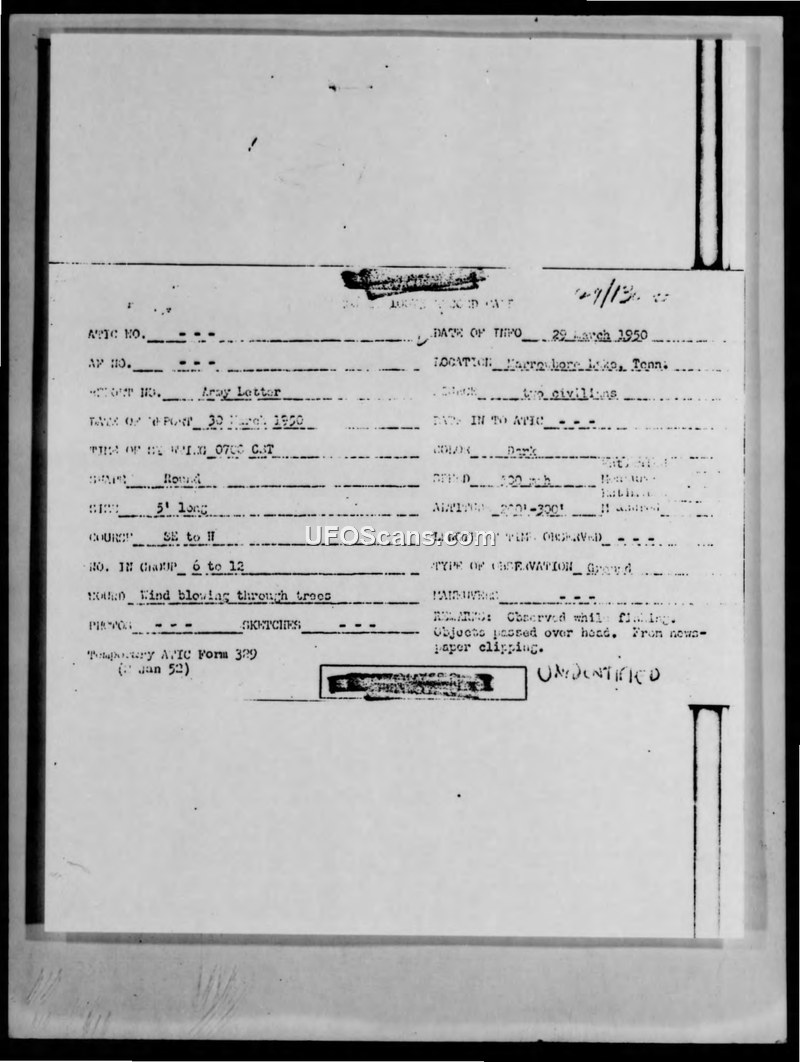 ATIC NO. - - - DATE OF INFO 29 March 1950
AF NO. - - - LOCATION Lake, Tenn.
NO. Army Letter two civilians
DATE OF REPORT 30 March 1950 DATE IN TO ATIC - - -
TIME OF 0700 CST COLOR Dark
SHAPE Round SPEED mph
SIZE 5' long ALTITUDE -300'
COURSE SE to N LENGTH OF TIME OBSERVED - - -
NO. IN GROUP 6 to 12 TYPE OF OBSERVATION Ground
SOUND Wind blowing through trees MANEUVERS - - -
PHOTOS - - - SKETCHES - - - REMARKS: Observed while fishing.
Objects passed over head. From news-
paper clipping.
Temporary ATIC Form 329
(2 Jan 52)
UNIDENTIFIED
UFOScans.com